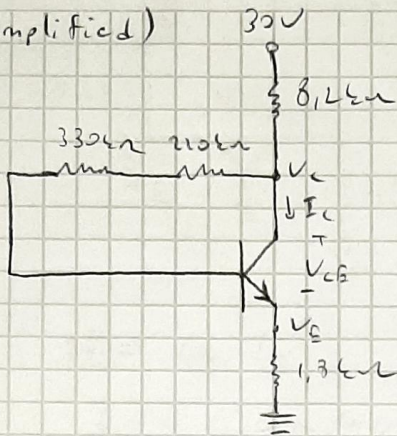 mplified)
30V
8,2kΩ
330kΩ
V_C
↓ I_C
+
V_CE
−
V_E
1,8kΩ